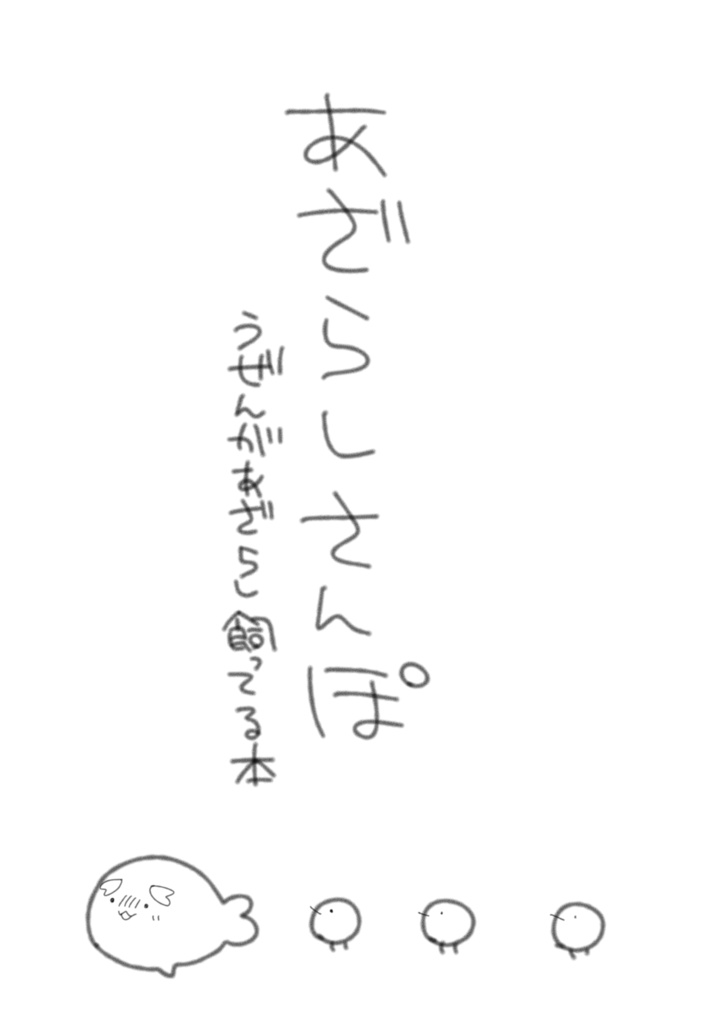 あざらしさんぽ
うぜんがあざらし飼ってる本